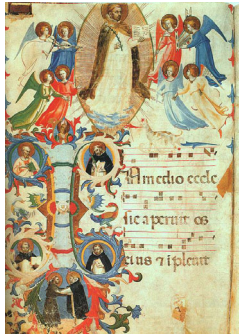 In medio eccle
sie aperuit os
eius et ĩpleuit